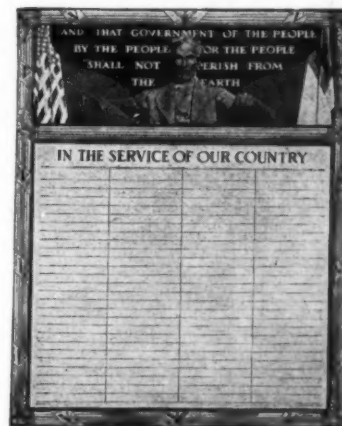 AND THAT GOVERNMENT OF THE PEOPLE
BY THE PEOPLE FOR THE PEOPLE
SHALL NOT PERISH FROM
THE EARTH
IN THE SERVICE OF OUR COUNTRY